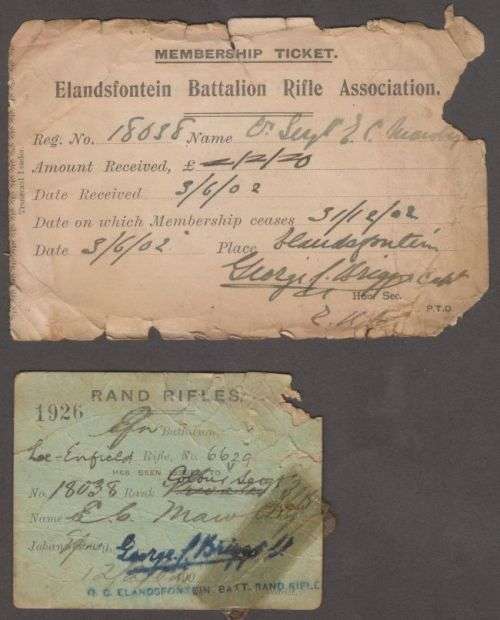 MEMBERSHIP TICKET.
Elandsfontein Battalion Rifle Association.
Reg. No. 18038 Name Sergt E. C.
Amount Received, £
Date Received 3/6/02
Date on which Membership ceases 31/12/02
Date 3/6/02 Place Elandsfontein
George J. Briggs Capt
Hon. Sec.
P.T.O
RAND RIFLES.
1926
Efn Battalion
Lee-Enfield Rifle, No. 6629
HAS BEEN ISSUED TO
No. 18038 Rank Colour Sergt
Name E. C.
Johannesburg,
George J. Briggs
O. C. ELANDSFONTEIN. BATT. RAND RIFLE